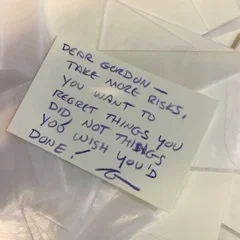 DEAR GORDON —
TAKE MORE RISKS.
YOU WANT TO
REGRET THINGS YOU
DID, NOT THINGS
YOU WISH YOU'D
DONE!